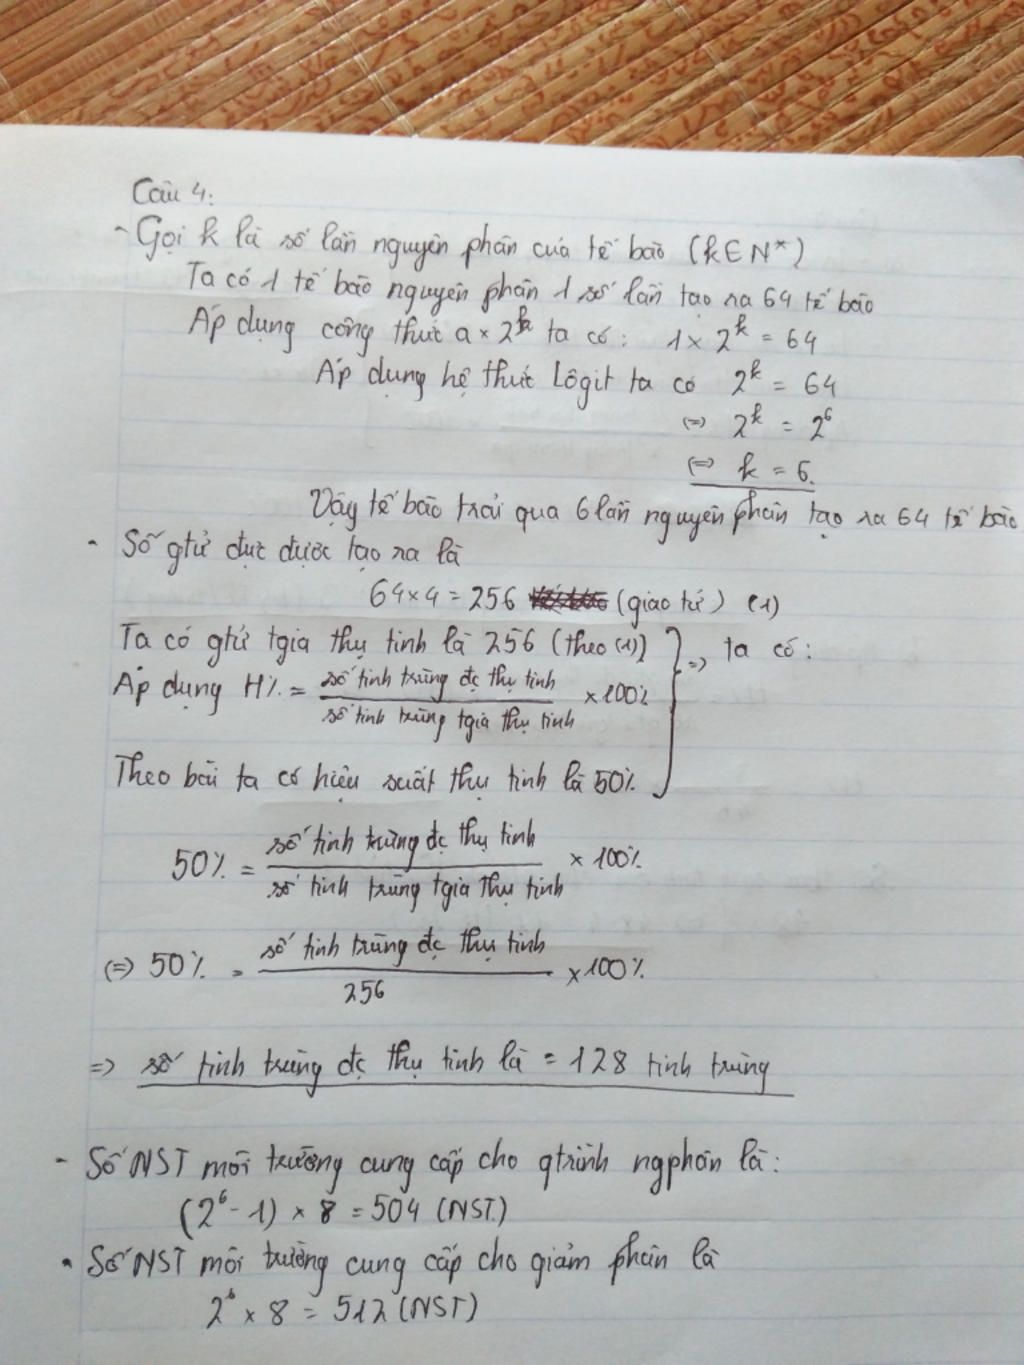 Câu 4:
- Gọi k là số lần nguyên phân của tế bào (k∈N*)
Ta có 1 tế bào nguyên phân 1 số lần tạo ra 64 tế bào
Áp dụng công thức a × 2^k ta có: 1 × 2^k = 64
Áp dụng hệ thức Lôgit ta có 2^k = 64
(=) 2^k = 2^6
(=) k = 6.
Vậy tế bào trải qua 6 lần nguyên phân tạo ra 64 tế bào
- Số gtử đực được tạo ra là
64×4 = 256 (giao tử) (1)
Ta có gtử tgia thụ tinh là 256 (theo (1)) } => ta có:
Áp dụng H% = số tinh trùng đc thụ tinh / số tinh trùng tgia thụ tinh ×100%
Theo bài ta có hiệu suất thụ tinh là 50%
50% = số tinh trùng đc thụ tinh / số tinh trùng tgia thụ tinh × 100%
(=) 50% = số tinh trùng đc thụ tinh / 256 × 100%
=> số tinh trùng đc thụ tinh là = 128 tinh trùng
- Số NST môi trường cung cấp cho qtrình ngphân là:
(2^6 - 1) × 8 = 504 (NST)
- Số NST môi trường cung cấp cho giảm phân là
2^6 × 8 = 512 (NST)